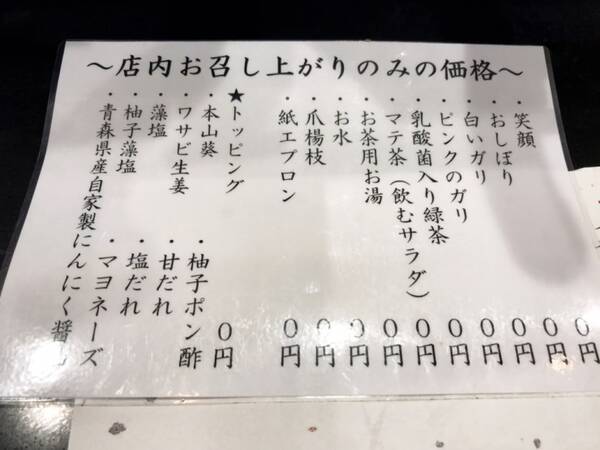 ～店内お召し上がりのみの価格～
・笑顔 ０円
・おしぼり ０円
・白いガリ ０円
・ピンクのガリ ０円
・乳酸菌入り緑茶 ０円
・マテ茶（飲むサラダ） ０円
・お茶用お湯 ０円
・お水 ０円
・爪楊枝 ０円
・紙エプロン ０円
★トッピング ０円
・本山葵 ・柚子ポン酢
・ワサビ生姜 ・甘だれ
・藻塩 ・塩だれ
・柚子藻塩 ・マヨネーズ
・青森県産自家製にんにく醤